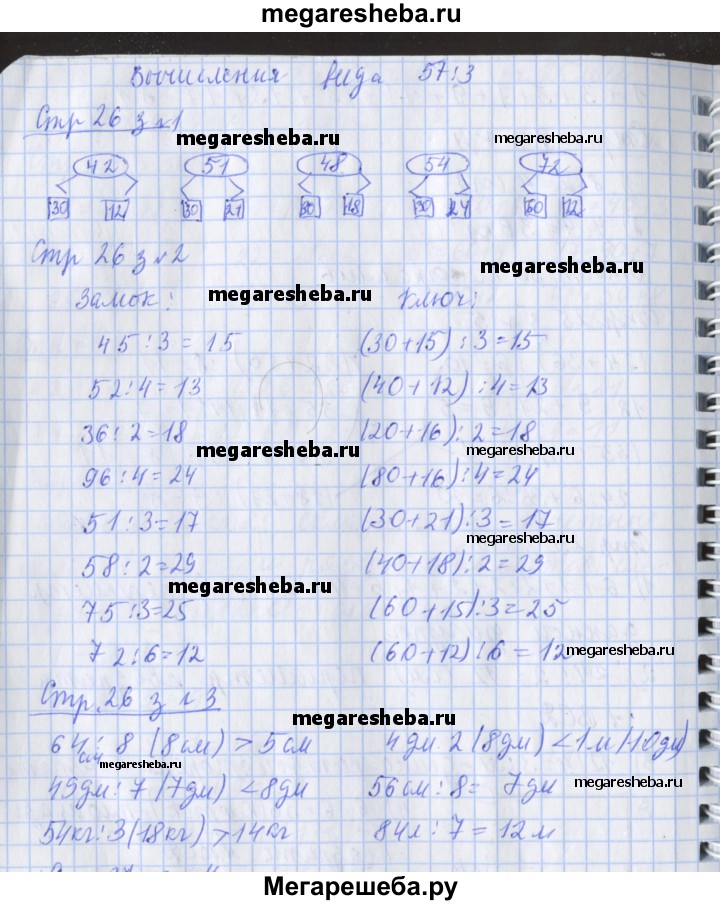 megaresheba.ru
Вычисления вида 57:3
Стр 26 з №1
megaresheba.ru megaresheba.ru
42 51 48 54 72
30 12 30 21 30 18 30 24 60 12
Стр 26 з №2
megaresheba.ru
Замок: megaresheba.ru Ключ:
45:3=15 (30+15):3=15
52:4=13 (40+12):4=13
36:2=18 (20+16):2=18
megaresheba.ru megaresheba.ru
96:4=24 (80+16):4=24
51:3=17 (30+21):3=17
megaresheba.ru
58:2=29 (40+18):2=29
megaresheba.ru
75:3=25 (60+15):3=25
72:6=12 (60+12):6=12
megaresheba.ru
Стр. 26 з №3
megaresheba.ru
64см:8 (8см)>5см 4дм·2(8дм)<1м(10дм)
megaresheba.ru
49дм:7(7дм)<8дм 56см:8= 7дм
megaresheba.ru
54кг:3(18кг)>14кг 84л:7=12л
Мегарешеба.ру